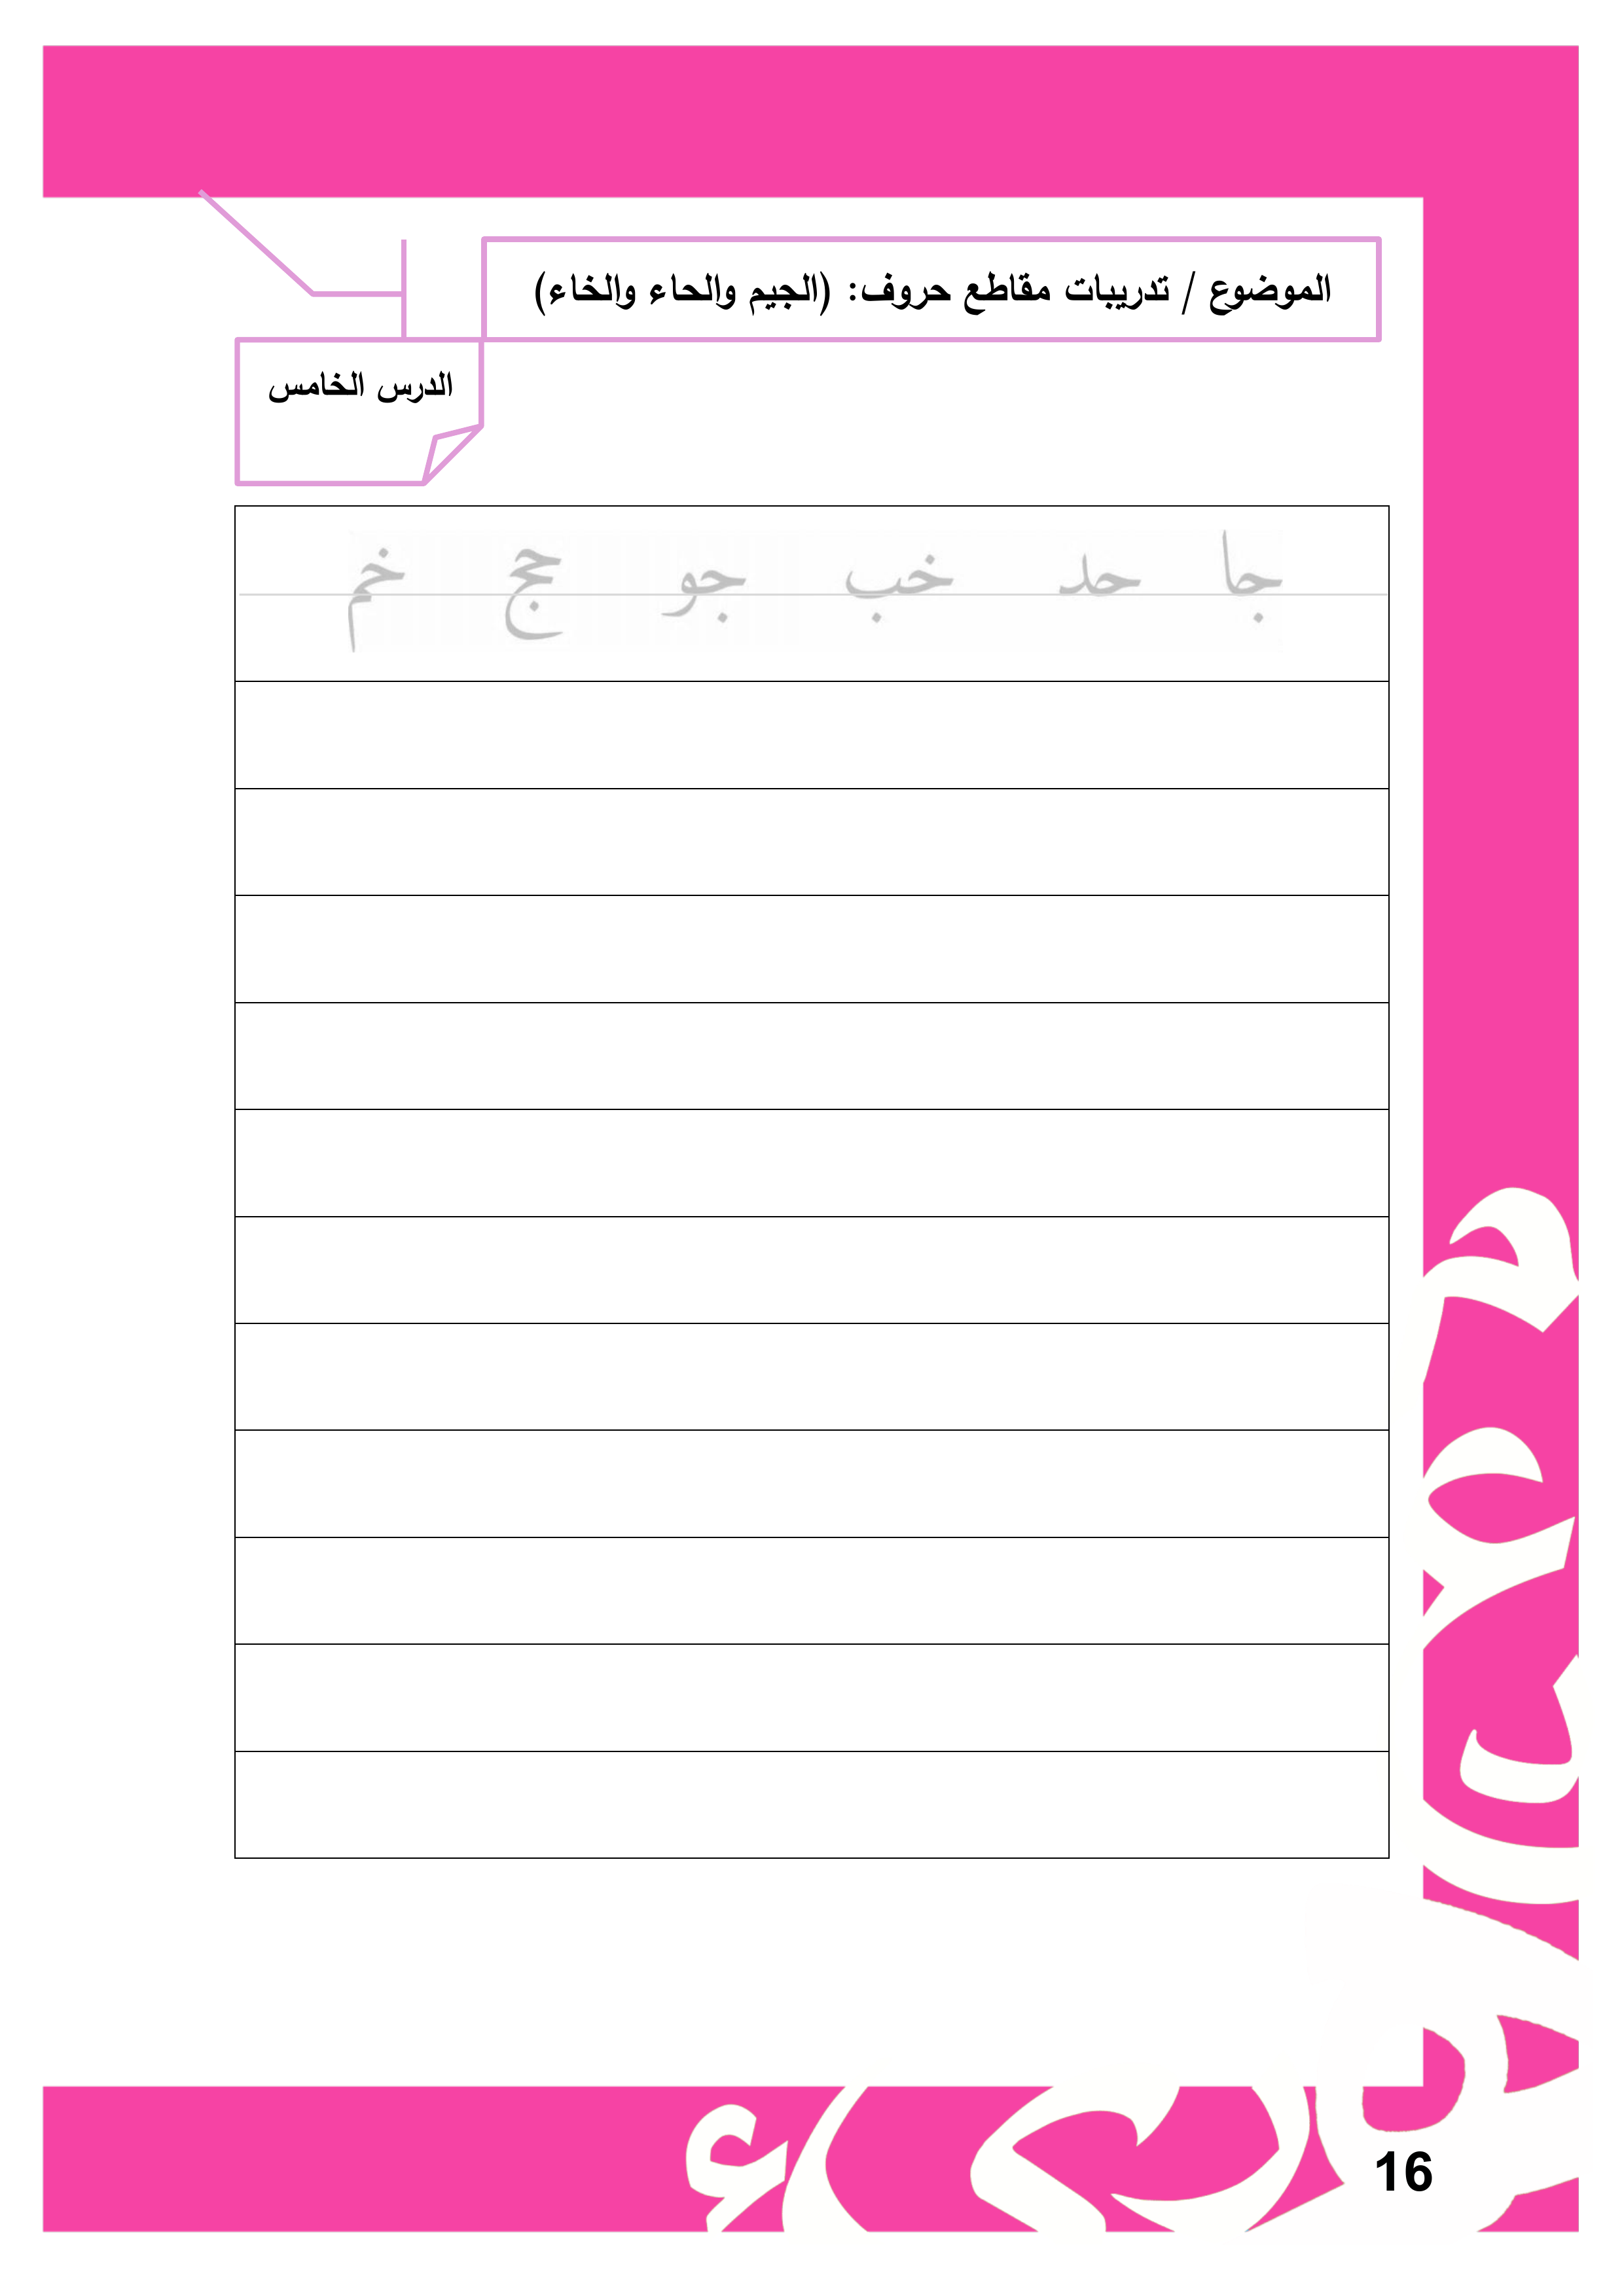 الموضوع / تدريبات مقاطع حروف: (الجيم والحاء والخاء)
الدرس الخامس
جا حد خب جو حج خم
16